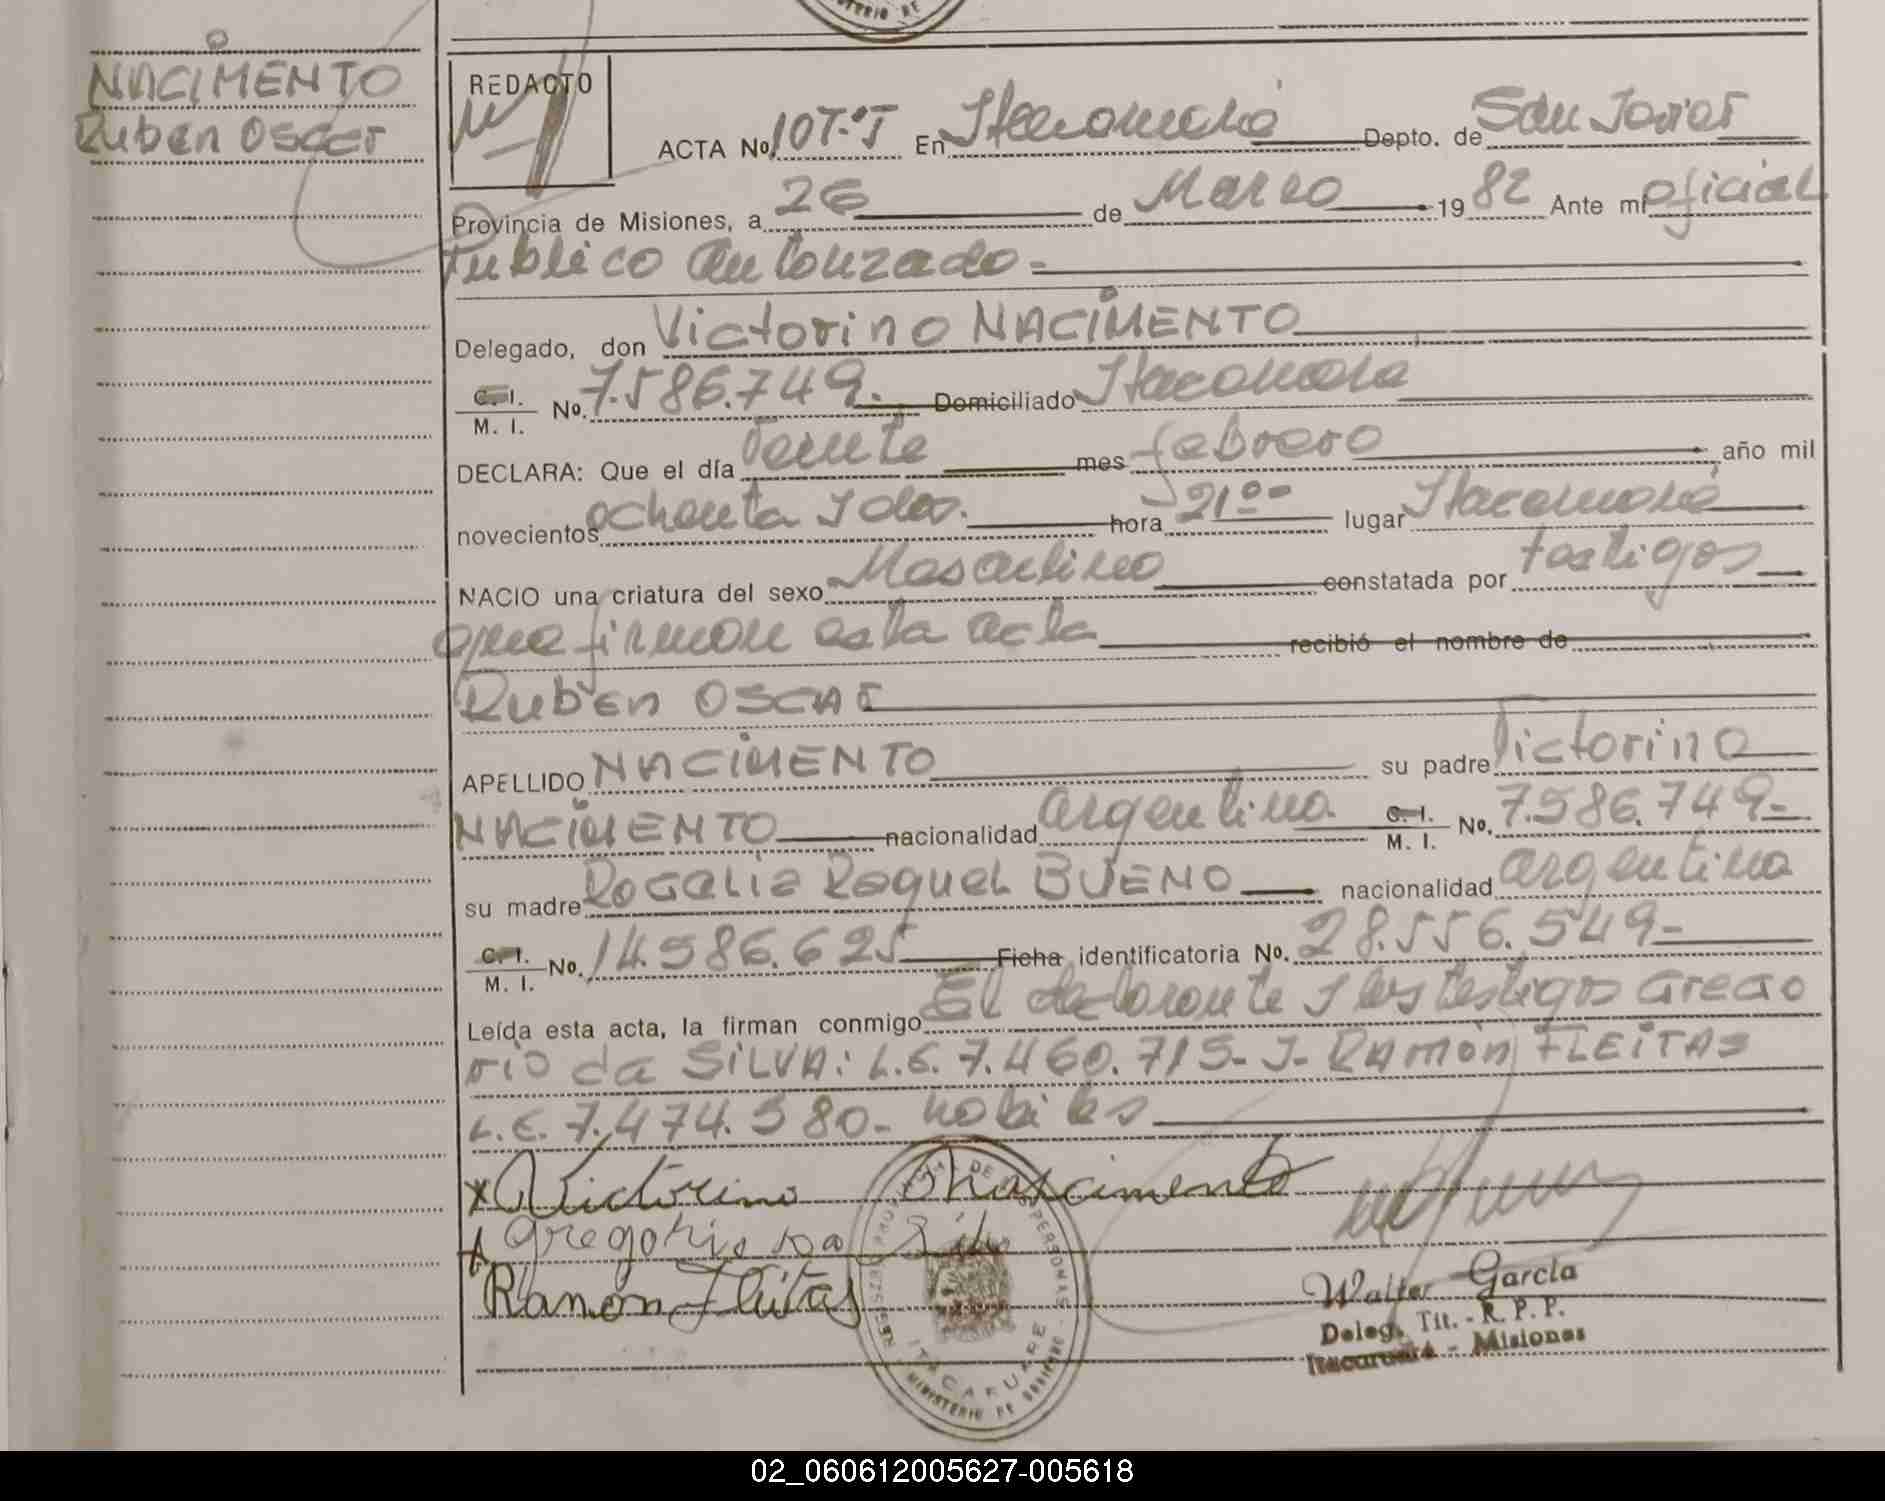 NACIMENTO
Ruben Oscar
REDACTO
ACTA No. 10T.I En Itacaruaré Depto. de San Javier
Provincia de Misiones, a 26 de Marzo 1982 Ante mí oficial
Publico autorizado-
Delegado, don Victorino NACIMENTO
C. I. M. I. No. 7.586.749. Domiciliado Itacaruaré
DECLARA: Que el día veinte mes febrero año mil
novecientos ochenta y dos. hora 21 oo lugar Itacaruaré
NACIO una criatura del sexo Masculino constatada por testigos
que firman esta acta recibió el nombre de
Ruben OSCAR
APELLIDO NACIMENTO su padre Victorino
NACIMENTO nacionalidad argentina C. I. M. I. No. 7.586.749-
su madre Rogelia Raquel BUENO nacionalidad argentina
C. I. M. I. No. 14.586.625 Ficha identificatoria No. 28.556.549-
Leída esta acta, la firman conmigo El declarante y los testigos Grego
rio da SILVA: L.E. 7.460.715- y- RAMON FLEITAS
L.E. 7.474.580- habiles
x Victorino Nascimento
Gregorio da Silva
Ramon Fleitas
ITACARUARE
MINISTERIO DE GOBIERNO
Walter García
Deleg. Tit. - R. P. P.
Itacaruaré - Misiones
02_060612005627-005618